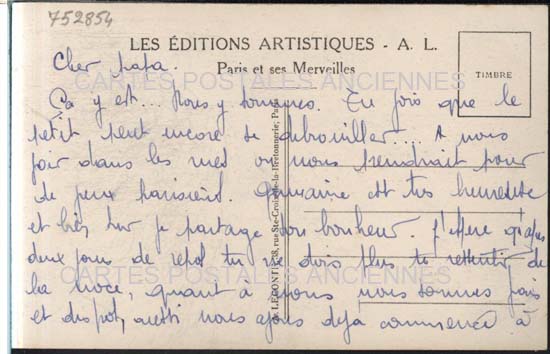 752854
LES ÉDITIONS ARTISTIQUES - A. L.
Cher papa.
Paris et ses Merveilles
TIMBRE
CARTES POSTALES ANCIENNES
Ça y est... Nous y sommes. Tu vois que le
petit peut encore se débrouiller... A nous
voir dans les rues on nous prendrait pour
de vieux parisiens. est très heureuse
et bien sur je partage son bonheur. J'espère qu'après
deux jours de repos tu ne dois plus te ressentir de
la noce, quant à nous nous sommes gais
et dispos, aussi nous avons deja commencé à
LECONTE, 38, rue Ste-Croix-de-la-Bretonnerie, Paris
CARTES POSTALES ANCIENNES